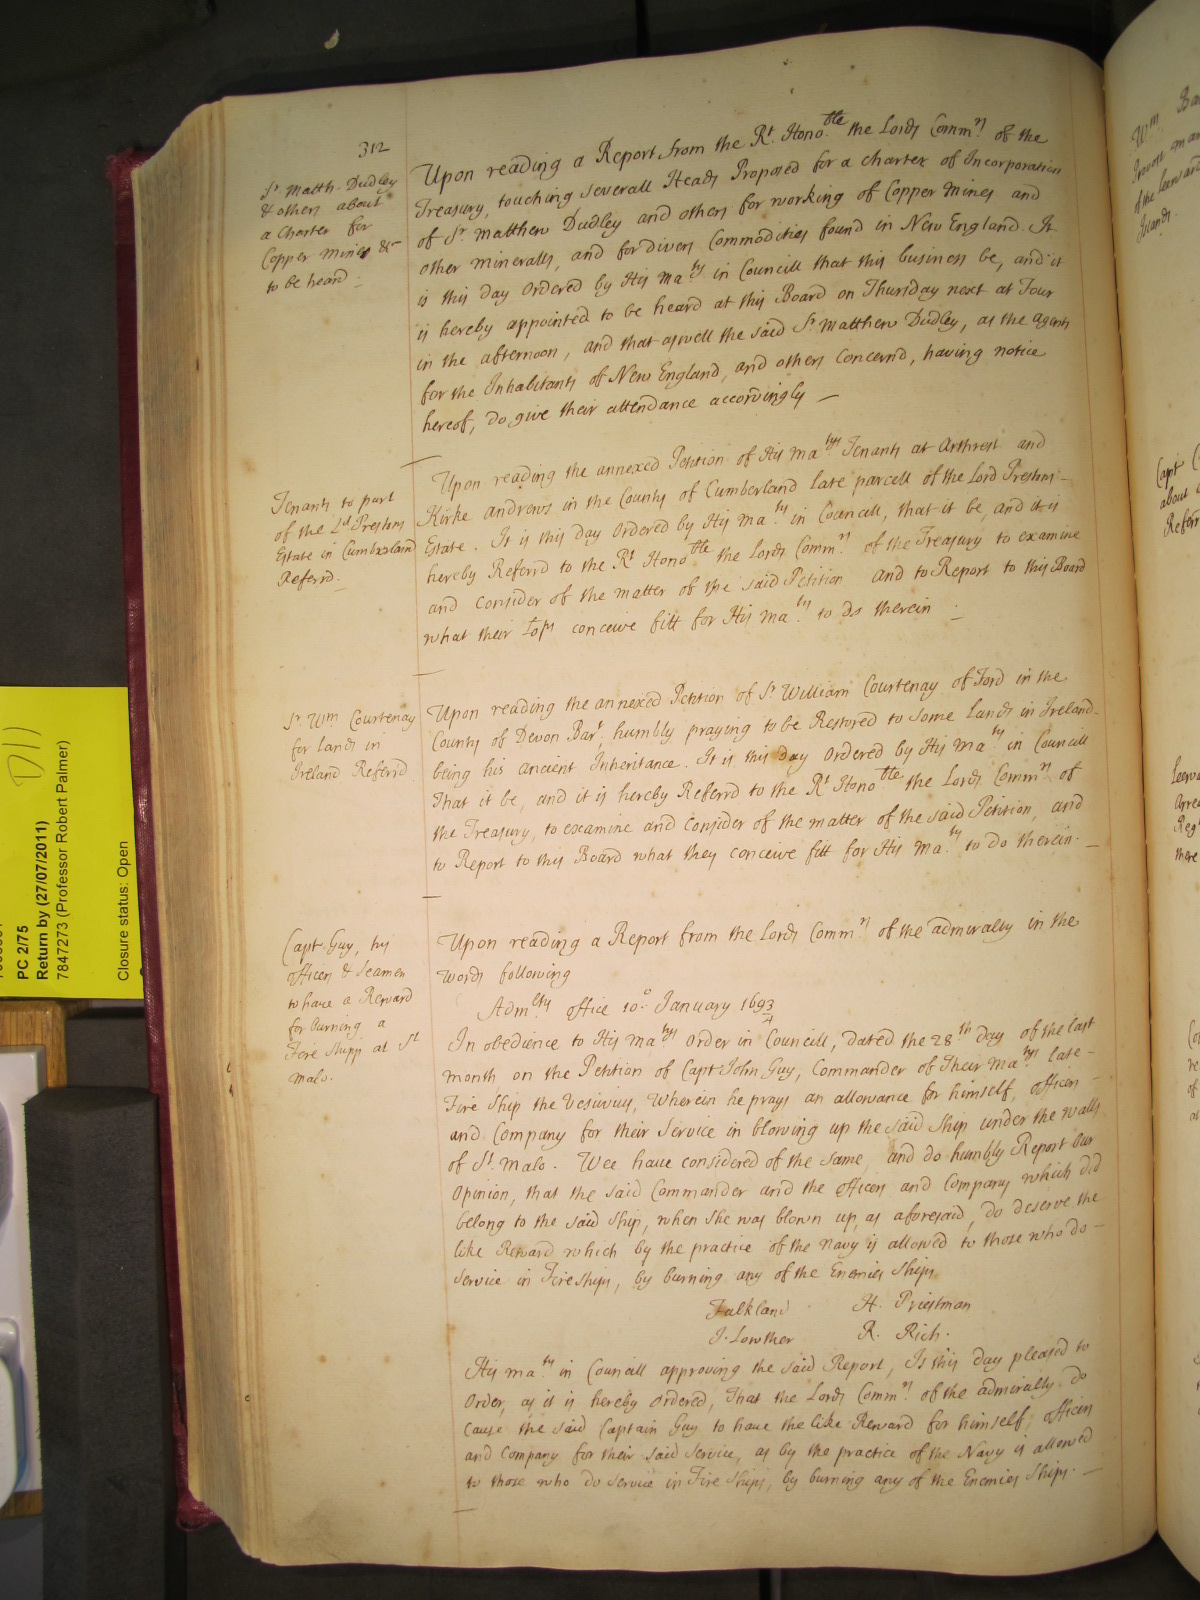 312
Sr Matth: Dudley
& others about
a Charter for
Copper Mines &c
to be heard
Upon reading a Report from the Rt Honoble the Lords Commrs of the
Treasury, touching severall Heads Proposed for a charter of Incorporation
of Sr Matthew Dudley and others for working of Copper Mines and
other Mineralls, and for divers Commodities found in New England. It
is this day Ordered by His Maty in Councill that this business be, and it
is hereby appointed to be heard at this Board on Thursday next at Four
in the afternoon, and that aswell the said Sr Matthew Dudley, as the Agents
for the Inhabitants of New England, and others Concernd, having notice
hereof, do give their attendance accordingly —
Tenants to part
of the Ld Prestons
Estate in Cumberland
Referrd.
Upon reading the annexed Petition of His Matys Tenants at Arthrest and
Kirke andrews in the County of Cumberland late parcell of the Lord Prestons
Estate. It is this day Ordered by His Maty in Councill, that it be, and it is
hereby Referrd to the Rt Honoble the Lords Commrs of the Treasury to examine
and Consider of the matter of the said Petition and to Report to this Board
what their Lops conceive fitt for His Maty to do therein
Sr Wm Courtenay
for lands in
Ireland Referrd
Upon reading the annexed Petition of Sr William Courtenay of Ford in the
County of Devon Bart, humbly praying to be Restored to some Lands in Ireland
being his ancient Inheritance. It is this day Ordered by His Maty in Councill
That it be, and it is hereby Referrd to the Rt Honoble the Lords Commrs of
the Treasury, to examine and Consider of the matter of the said Petition, and
to Report to this Board what they conceive fitt for His Maty to do therein. —
Capt Guy, his
officers & Seamen
to have a Reward
for burning a
Fire Shipp at St
Malo.
Upon reading a Report from the Lords Commrs of the admiralty in the
words following
Admlty office 10o January 1693/4
In obedience to His Matys Order in Councill, dated the 28th day of the last
month, on the Petition of Capt John Guy, Commander of Their Matys late
Fire Ship the Vesuvius, Wherein he prays an allowance for himself, officers
and Company for their Service in blowing up the said Ship under the walls
of St Malo. Wee have considered of the same, and do humbly Report Our
Opinion, that the said Commander and the officers and Company which did
belong to the said Ship, when She was blown up, as aforesaid, do deserve the
like Reward which by the practice of the Navy is allowed to those who do
Service in Fireships, by burning any of the Enemies Ships
Falkland H. Priestman
J. Lowther R. Rich.
His Maty in Councill approving the said Report, Is this day pleased to
Order, as it is hereby Ordered, That the Lords Commrs of the admiralty do
Cause the said Captain Guy to have the like Reward for himself, officers
and Company for their said Service, as by the practice of the Navy is allowed
to those who do Service in Fire Ships, by burning any of the Enemies Ships. —
D11
PC 2/75
Return by (27/07/2011)
7847273 (Professor Robert Palmer)
Closure status: Open
Wm
of the Leeward
Islands.
Capt
about
Referr